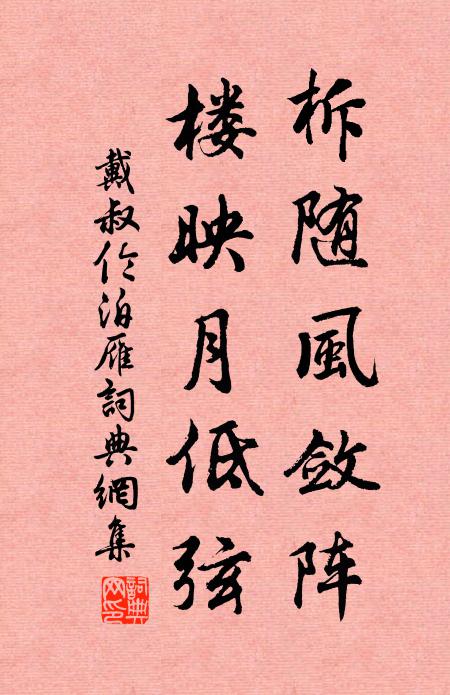 柝随風斂阵
楼映月低弦
戴叔伦泊雁詞典網集
詞典网印